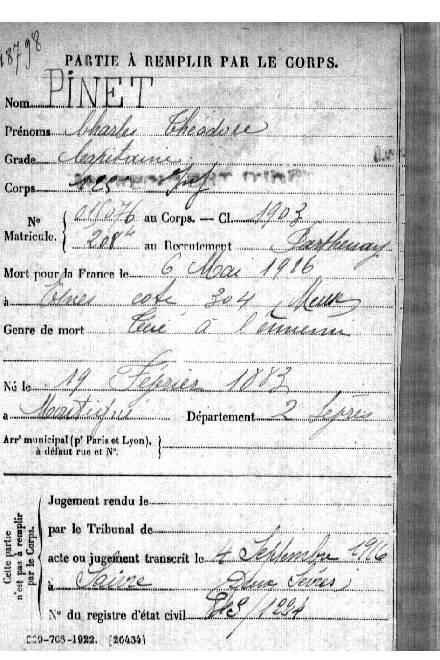 18798
PARTIE À REMPLIR PAR LE CORPS.
Nom PINET
Prénoms Charles Théodore
Grade Capitaine
Corps 125
N° Matricule. 015076 au Corps. — Cl. 1903
208 au Recrutement Parthenay
Mort pour la France le 6 Mai 1916
à cote 304 Meuse
Genre de mort Tué à l'ennemi
Né le 19 Février 1883
à Département 2 Sèvres
Arrᵗ municipal (pʳ Paris et Lyon), à défaut rue et N°.
Cette partie n'est pas à remplir par le Corps.
Jugement rendu le
par le Tribunal de
acte ou jugement transcrit le 4 Septembre 1916
à Saivre Deux Sèvres
N° du registre d'état civil
-708-1922. [26434]